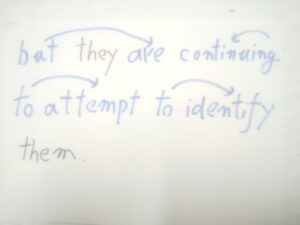 but they are continuing
to attempt to identify
them.